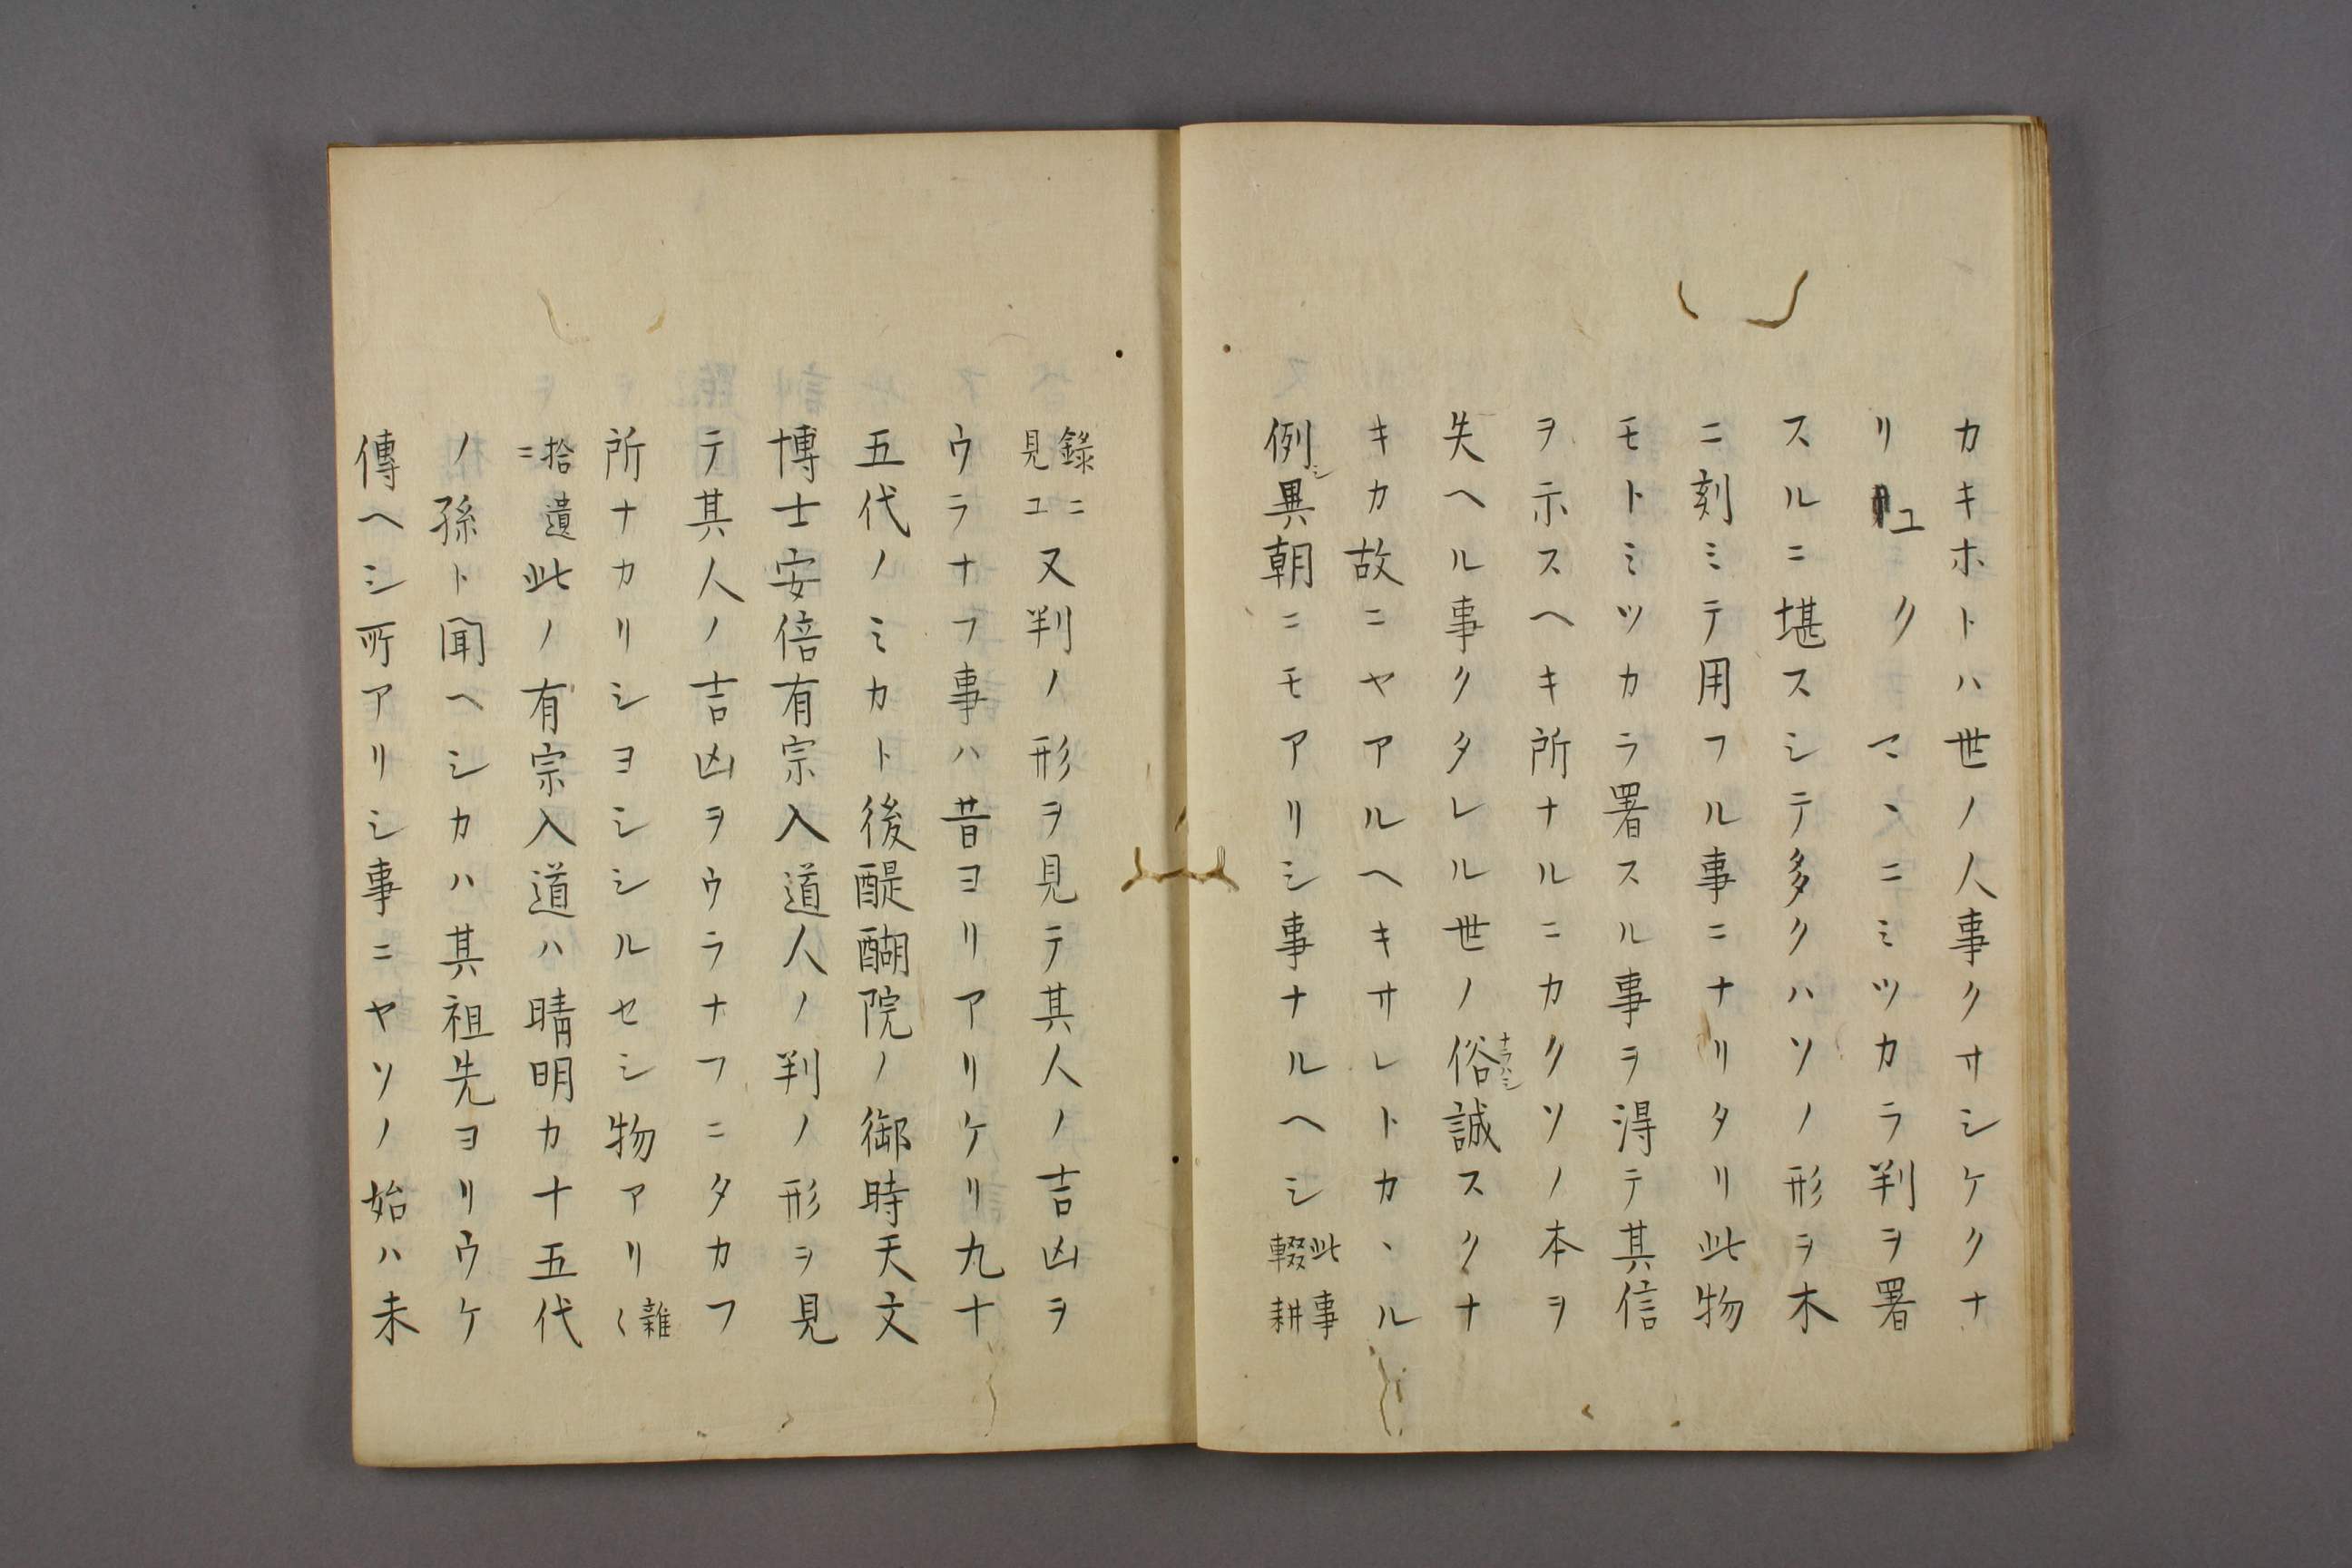 カキホトハ世ノ人事クサシケクナ
リユクマヽニミツカラ判ヲ署
スルニ堪スシテ多クハソノ形ヲ木
ニ刻ミテ用フル事ニナリタリ此物
モトミツカラ署スル事ヲ淂テ其信
ヲ示スヘキ所ナルニカクソノ本ヲ
失ヘル事クタレル世ノ俗ナラハシ誠スクナ
キカ故ニヤアルヘキサレトカヽル
例シ異朝ニモアリシ事ナルヘシ此事輟耕
錄ニ見ユ又判ノ形ヲ見テ其人ノ吉凶ヲ
ウラナフ事ハ昔ヨリアリケリ九十
五代ノミカト後醍醐院ノ御時天文
博士安倍有宗入道人ノ判ノ形ヲ見
テ其人ノ吉凶ヲウラナフニタカフ
所ナカリシヨシシルセシ物アリ雜〻
拾遺ニ此ノ有宗入道ハ晴明カ十五代
ノ孫ト聞ヘシカハ其祖先ヨリウケ
傳ヘシ所アリシ事ニヤソノ始ハ未